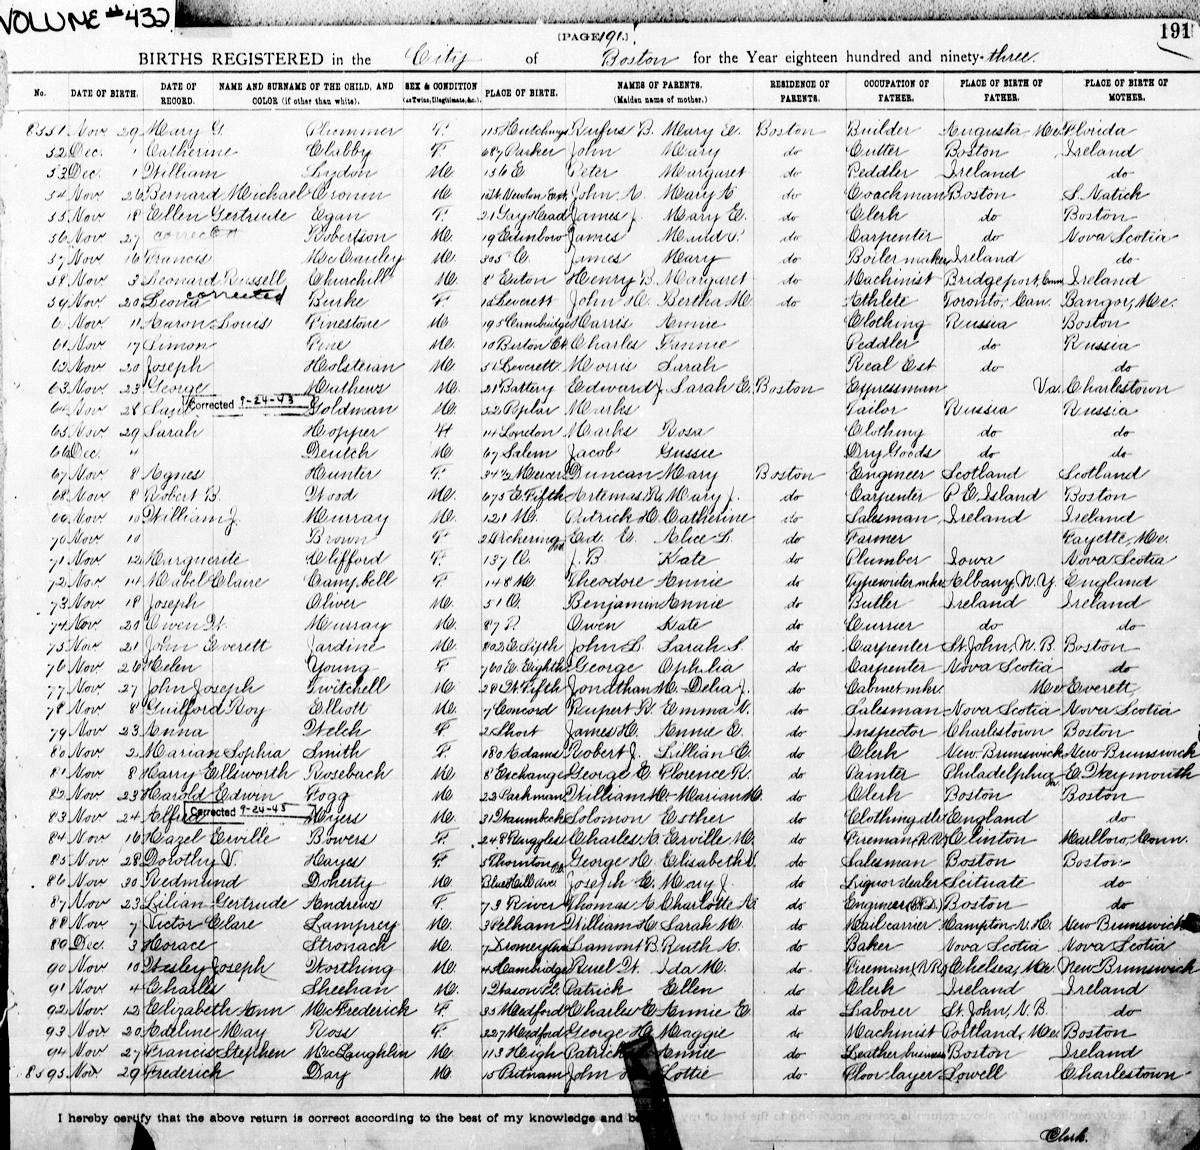 VOLUME #432
[PAGE 191.]
191
BIRTHS REGISTERED in the City of Boston for the Year eighteen hundred and ninety-three.
No. DATE OF BIRTH. DATE OF RECORD. NAME AND SURNAME OF THE CHILD, AND COLOR (if other than white). SEX & CONDITION (as Twins, Illegitimate, &c.) PLACE OF BIRTH. NAMES OF PARENTS. (Maiden name of mother.) RESIDENCE OF PARENTS. OCCUPATION OF FATHER. PLACE OF BIRTH OF FATHER. PLACE OF BIRTH OF MOTHER.
8551 Nov 29 Mary G. Plummer F. 115 Hutchings Rufus B. Mary E. Boston Builder Augusta, Me. Florida
52 Dec. 1 Catherine Clabby F. 687 Parker John Mary do Cutter Boston Ireland
53 Dec. 1 William Lydon M. 156 E Peter Margaret do Peddler Ireland do
54 Nov 26 Bernard Michael Cronin M. John A. Mary A. do Coachman Boston S. Natick
55 Nov 18 Ellen Gertrude Egan F. 21 Gay Head James J. Mary E. do Clerk do Boston
56 Nov 27 corrected Robertson M. 19 Edinboro James Maud do Carpenter do Nova Scotia
57 Nov 16 Francis McCauley M. 305 C. James Mary do Boiler maker Ireland do
58 Nov 3 Leonard Russell Churchill M. 8 Euton Henry B. Margaret do Machinist Bridgeport, Conn Ireland
59 Nov 20 Leona corrected Burke F. 15 Leverett John H. Bertha M. do Athlete Toronto, Can. Bangor, Me.
Nov 11 Aaron Louis Pinestone M. 195 Cambridge Harris Annie Clothing Russia Boston
61 Nov 17 Simon Pine M. 10 Barton Ct Charles Fannie Peddler do Russia
62 Nov 20 Joseph Holsteian M. 51 Leverett Morris Sarah Real Est do do
63 Nov 23 George Mathews M. 21 Battery Edward J. Sarah E. Boston Expressman Va. Charlestown
64 Nov 28 Corrected 9-24-43 Goldman M. 52 Poplar Marks Tailor Russia Russia
65 Nov 29 Sarah Hopper F 14 London Marks Rosa Clothing do do
66 Dec. 4 Deutch M. 67 Salem Jacob Gussie Dry Goods do do
67 Nov 8 Agnes Hunter F. 34½ Mercer Duncan Mary Boston Engineer Scotland Scotland
68 Nov 8 Robert B. Wood M. 675 E Fifth Artemas R. Mary J. do Carpenter P. E. Island Boston
69 Nov 10 William J. Murray M. 121 M. Patrick H. Catherine do Salesman Ireland Ireland
70 Nov 10 Brown F. 2 Pickering Ed. E. Alice L. do Farmer Fayette, Me.
71 Nov 12 Marguerite Clifford F. 137 O. J. B. Kate do Plumber Iowa Nova Scotia
72 Nov 14 Mabel Claire Campbell F. 148 M. Theodore Annie do Typewriter mkr Albany, N. Y. England
73 Nov 18 Joseph Oliver M. 51 O. Benjamin Annie do Butler Ireland Ireland
74 Nov 20 Owen W. Murray M. 87 P. Owen Kate do Currier do do
75 Nov 21 John Everett Jardine M. 802 E Fifth John L. Sarah S. do Carpenter St John, N. B. Boston
76 Nov 26 Helen Young F. 760 E. Eighth George Ophelia do Carpenter Nova Scotia do
77 Nov 27 John Joseph Twitchell M. 281 W Fifth Jonathan M. Delia J. do Cabinet mkr Me Everett,
78 Nov 8 Guilford Roy Elliott M. 7 Concord Rupert R. Emma V. do Salesman Nova Scotia Nova Scotia
79 Nov 23 Anna Welch F. 2 Short James H. Annie E. do Inspector Charlestown Boston
80 Nov 2 Marian Sophia Smith F. 180 Adams Robert J. Lillian C. do Clerk New Brunswick New Brunswick
81 Nov 8 Harry Ellsworth Rosebach M. 8 Exchange George E Florence R. do Painter Philadelphia E. Weymouth
82 Nov 23 Harold Edwin Fogg M. 22 Parkman William H. Marian M. do Clerk Boston Boston
83 Nov 24 Alfred Corrected 9-24-45 Myers M. 31 Waumbeck Solomon Esther do Clothing dlr England do
84 Nov 16 Hazel Erville Bowers F. 248 Ruggles Charles A. Erville M. do Fireman (R.R.) Clinton Marlboro, Conn.
85 Nov 28 Dorothy V. Hayes F. 5 Thornton George H. Elisabeth V. do Salesman Boston Boston
86 Nov 30 Redmund Doherty M. Blue Hill Ave Joseph E. Mary J. do Liquor dealer Scituate do
87 Nov 23 Lilian Gertrude Andrews F. 73 River Thomas A. Charlotte A. do Engineer Boston do
88 Nov 7 Victor Clare Lamprey M. 3 Pelham William H. Sarah M. do Mail carrier Hampton N. H. New Brunswick
89 Dec. 3 Horace Stronach M. 7 Dromey Ave Lamont B. Ruth A. do Baker Nova Scotia Nova Scotia
90 Nov 10 Wesley Joseph Worthing M. Cambridge Ruel W. Ida M. do Fireman (R.R.) Chelsea, Me New Brunswick
91 Nov 4 Charles Sheehan M. 1 Wason Pl. Patrick Ellen do Clerk Ireland Ireland
92 Nov 12 Elizabeth Ann McFrederick F. 35 Medford Charles E Annie E. do Laborer St. John, N. B. do
93 Nov 20 Adeline May Ross F. 227 Medford George H. Maggie do Machinist Portland, Me. Boston
94 Nov 27 Francis Stephen McLaughlin M. 113 High Patrick Annie do Leather business Boston Ireland
8595 Nov 29 Frederick Day M. 15 Putnam John Lottie do Floor layer Lowell Charlestown
I hereby certify that the above return is correct according to the best of my knowledge and be
Clerk.